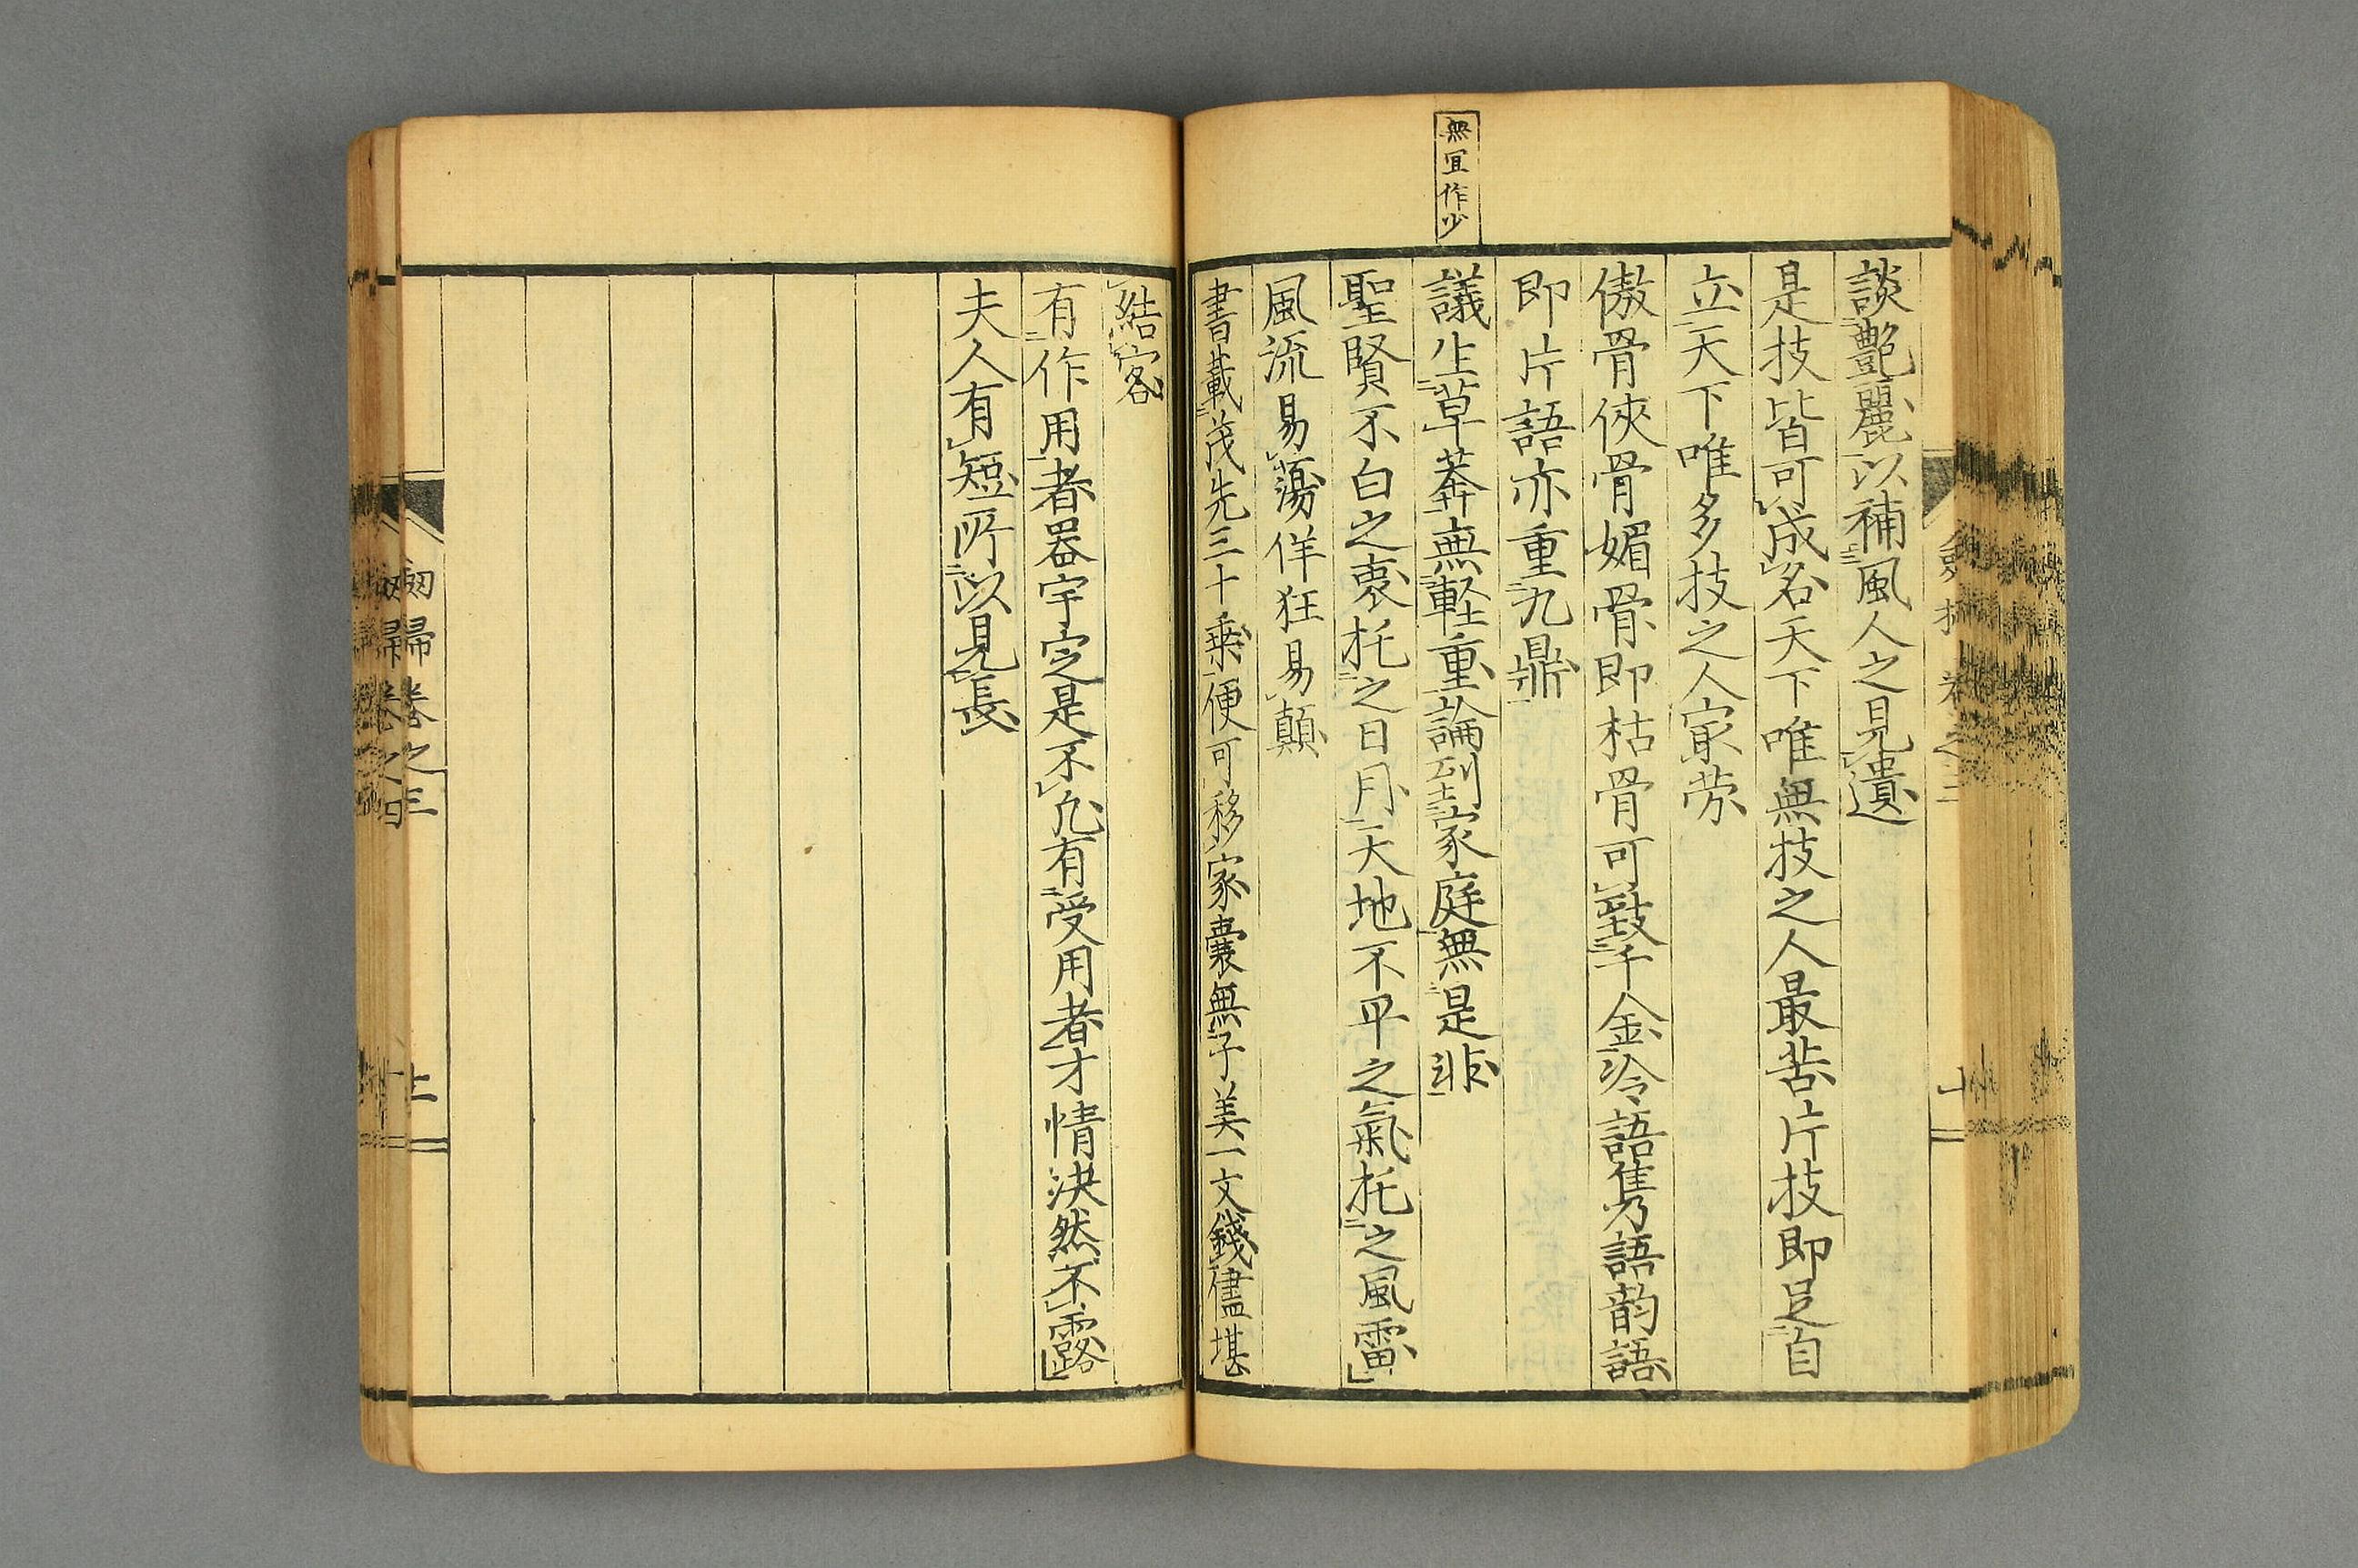 無宜作少
談艷麗以補風人之見遺
是技皆可成名天下唯無技之人最苦片技即足自
立天下唯多技之人㝡劳
傲骨俠骨媚骨即枯骨可鼓千金冷語雋語韵語
即片語亦重九鼎
議生草莽無軽重論到家庭無是非
聖賢不白之衷托之日月天地不平之氣托之風雷
風流易蕩佯狂易顛
書載茂先三十乗便可移家囊無子美一文錢儘堪
結客
有作用者器宇定是不凡有受用者才情決然不露
夫人有短所以見長
劒掃卷之三